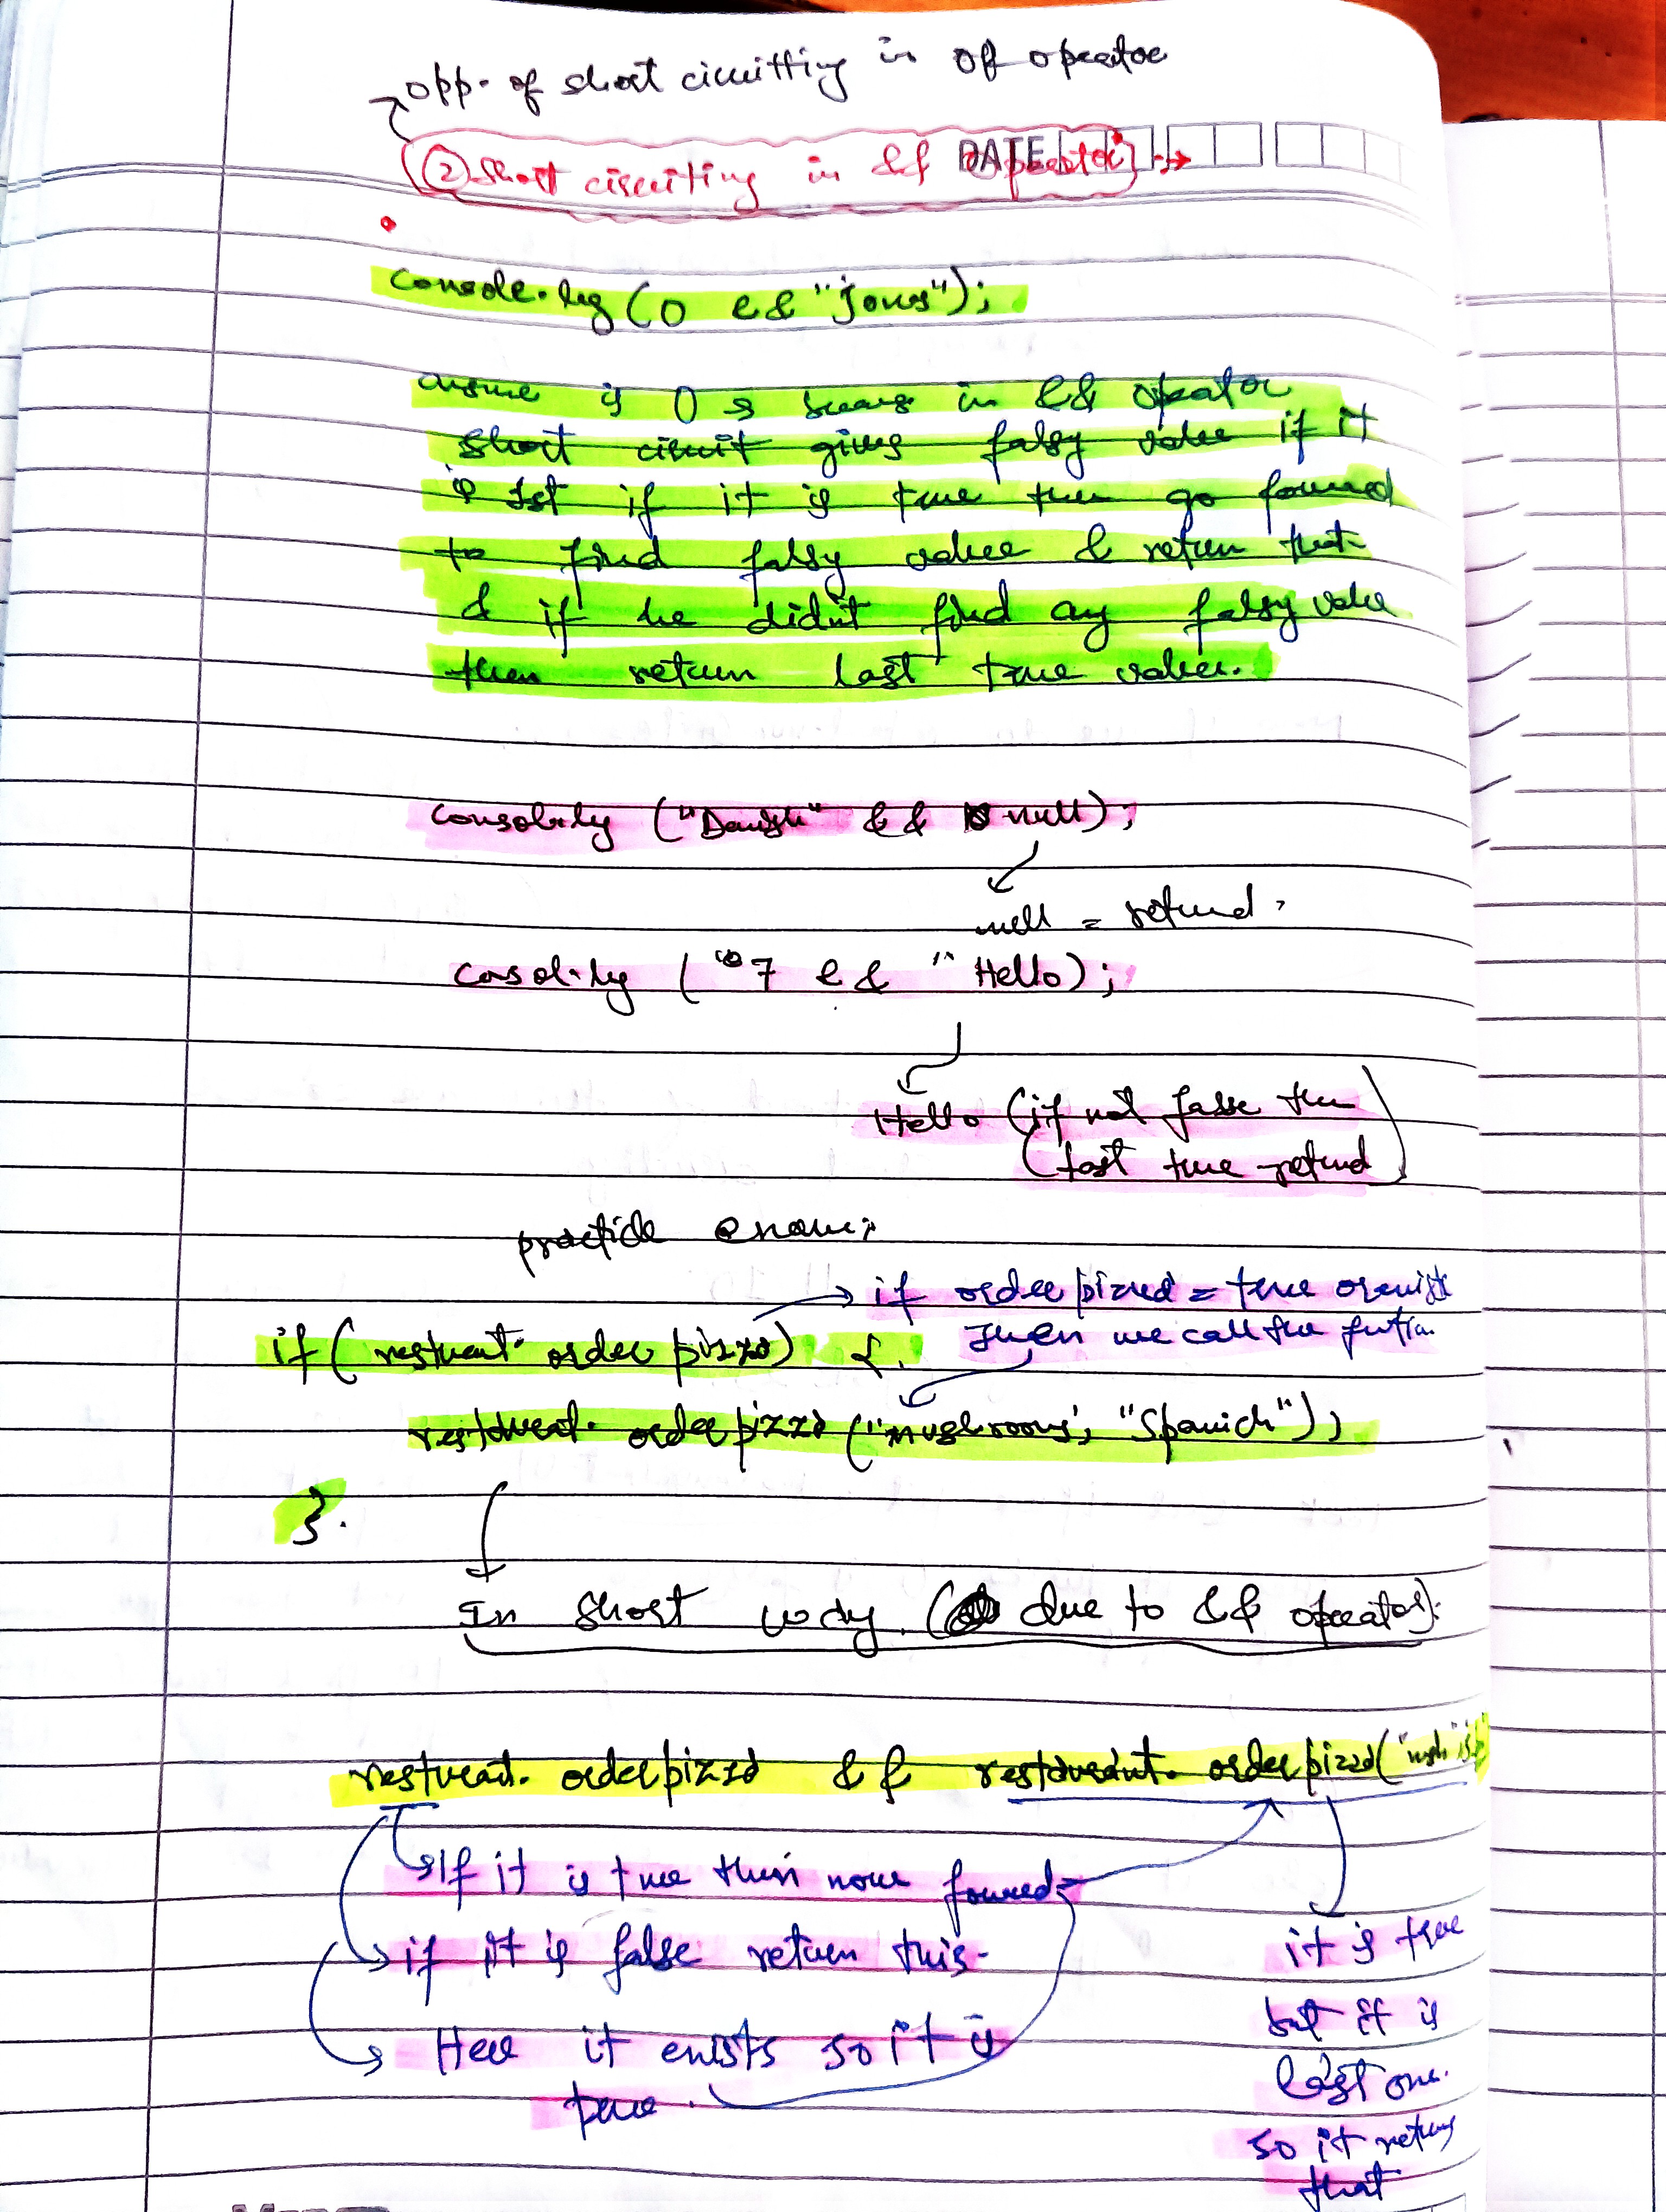 opp. of short circuitting in of opeator
DATE
② Short circuiting in && Opeator →
console.log (0 && "jonas");
answe is 0 → becaus in && opeator
short circuit gives falsy value if it
is 1st if it is true then go forward
to find falsy value & return that
& if he didn't find any falsy value
then return last true value.
consol.log ("Danish" && null);
null = returnd.
cosol.log ("7 && "Hello);
Hello (if not false then
(last true returnd)
practicle
→ if order pizzad = true or exists
Then we call the fuction.
if ( restuent. order pizza) {
restaurent. order pizza ("mushrooms", "Spanich");
}.
In short way. ( due to && opeator).
resturent. order pizza && restaurant. order pizza(
→ If it is true then move forward
→ if it is false return this.
→ Here it exists so it is
true.
it is true
but it is
last one.
so it returns
that